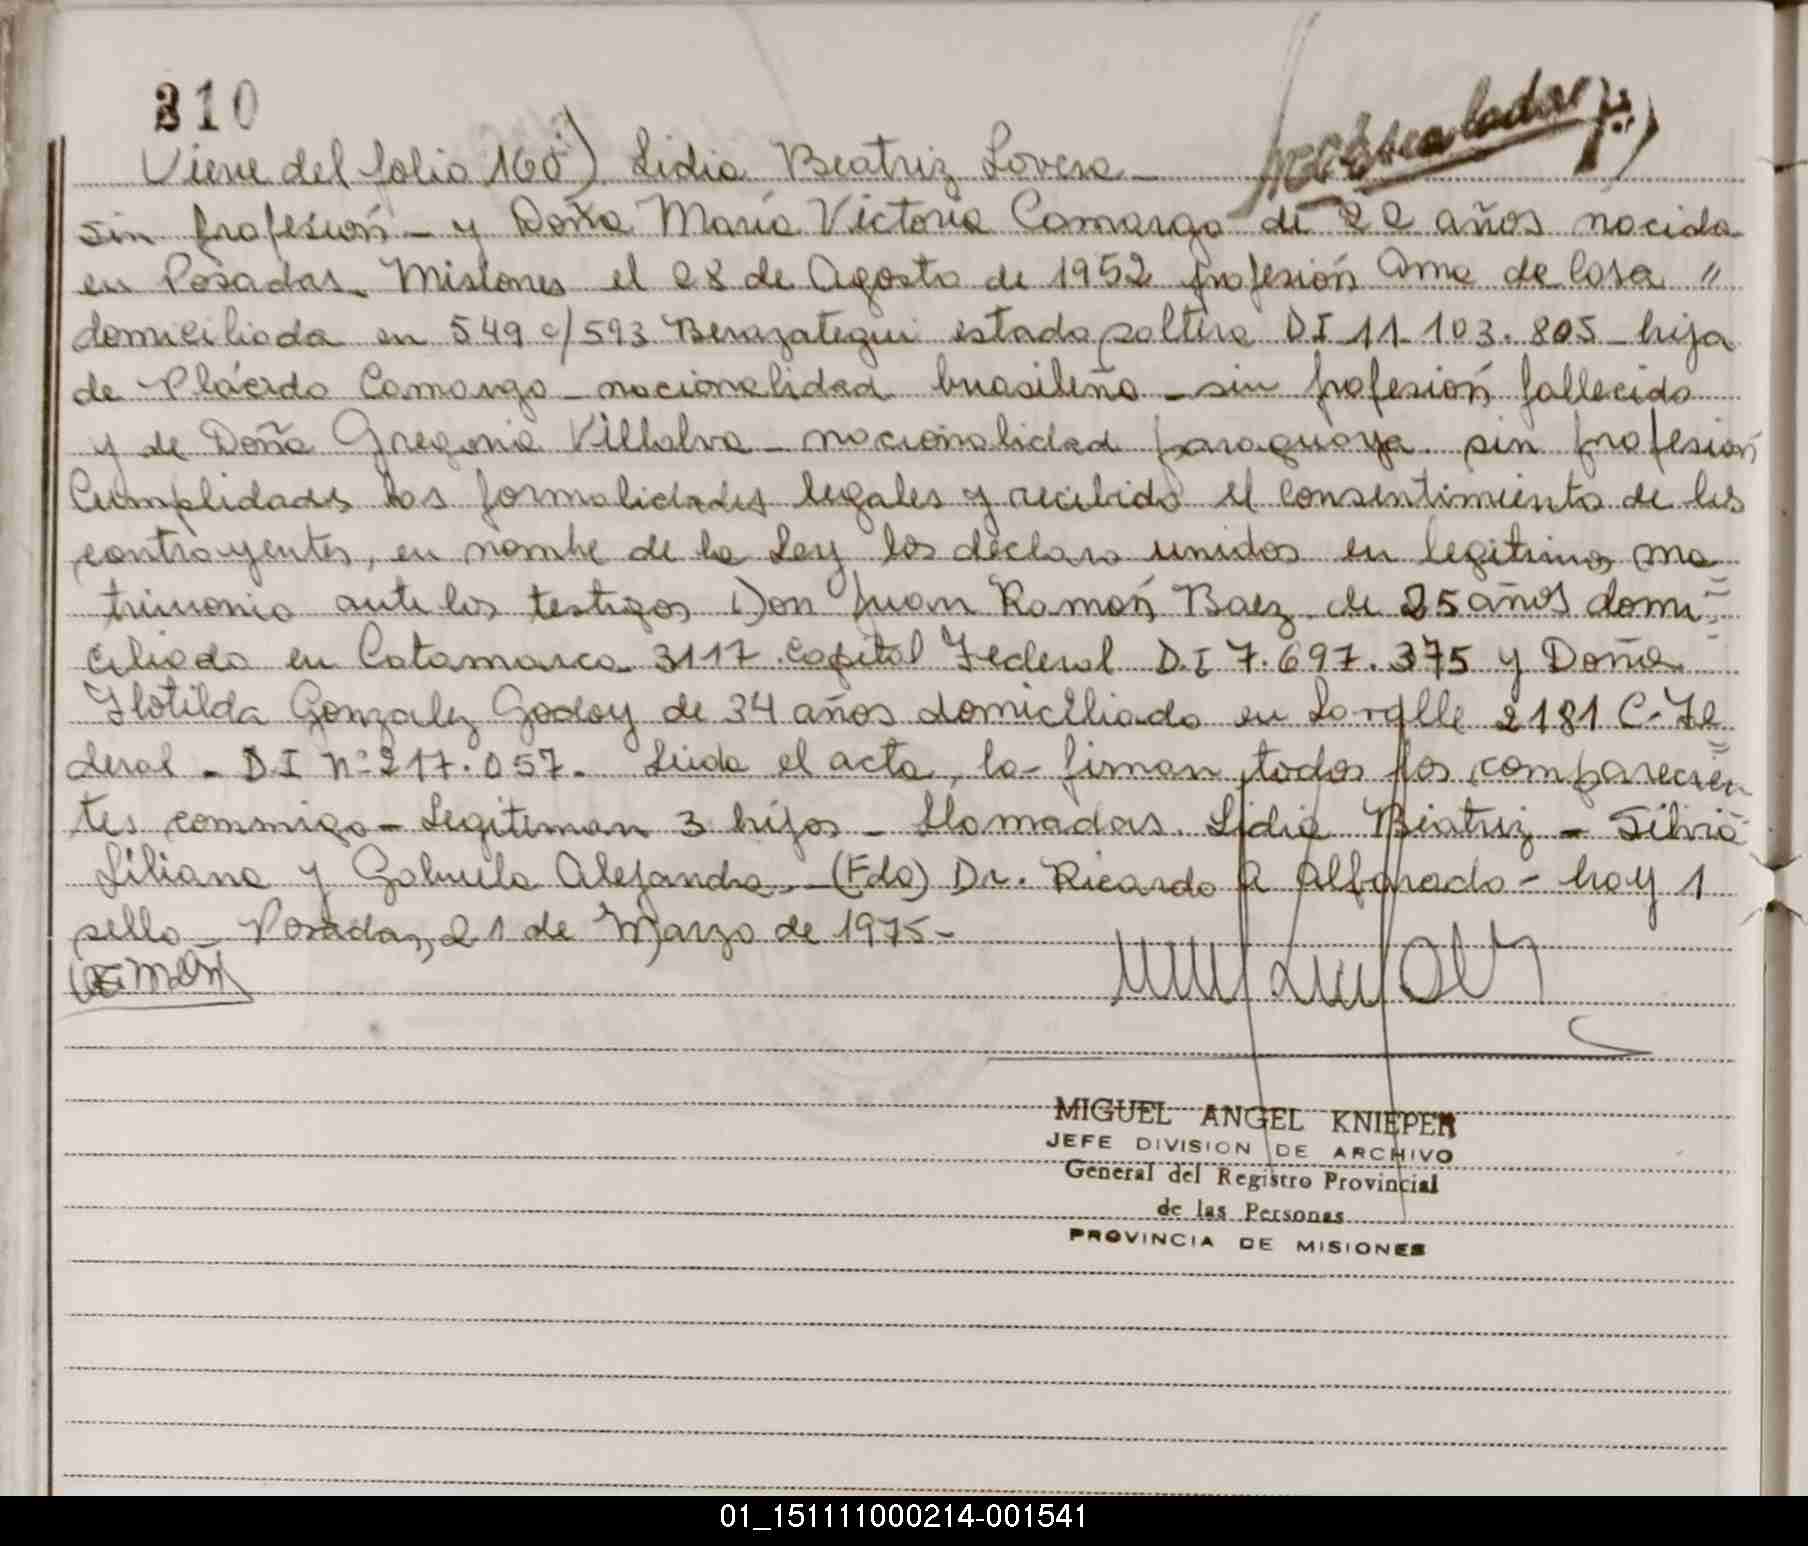 310
Viene del folio 160) Lidia Beatriz Lovera -
sin profesión - y Doña María Victoria Camargo de 22 años nacida
en Posadas. Misiones el 28 de Agosto de 1952 profesión Ama de Casa "
domiciliada en 549 c/593 Berazategui estado soltera DI 11.103.805 - hija
de Plácido Camargo - nacionalidad brasileña - sin profesión fallecido
y de Doña Gregoria Villalva - nacionalidad paraguaya. sin profesión
Cumplidades las formalidades legales y recibido el consentimiento de los
contrayentes, en nombre de la Ley los declaro unidos en legitimo ma
trimonio ante los testigos Don Juan Ramón Baez de 25 años domi=
ciliado en Catamarca 3117 Capital Federal D.I 7.697.375 y Doña
Flotilda Gonzalez Godoy de 34 años domicilliado en Lavalle 2181 C. Fe
deral - D.I nº 217.057. Leida el acta, la firman todos los comparecien=
tes commigo - Legitiman 3 hijos - Llamadas. Lidia Beatriz - Silvia
Liliana y Gabriela Alejandra. - (Fdo) Dr. Ricardo A Alfarado - hay 1
sello - Posadas, 21 de Marzo de 1975 -
MIGUEL ANGEL KNIEPER
JEFE DIVISION DE ARCHIVO
General del Registro Provincial
de las Personas
PROVINCIA DE MISIONES
01_151111000214-001541